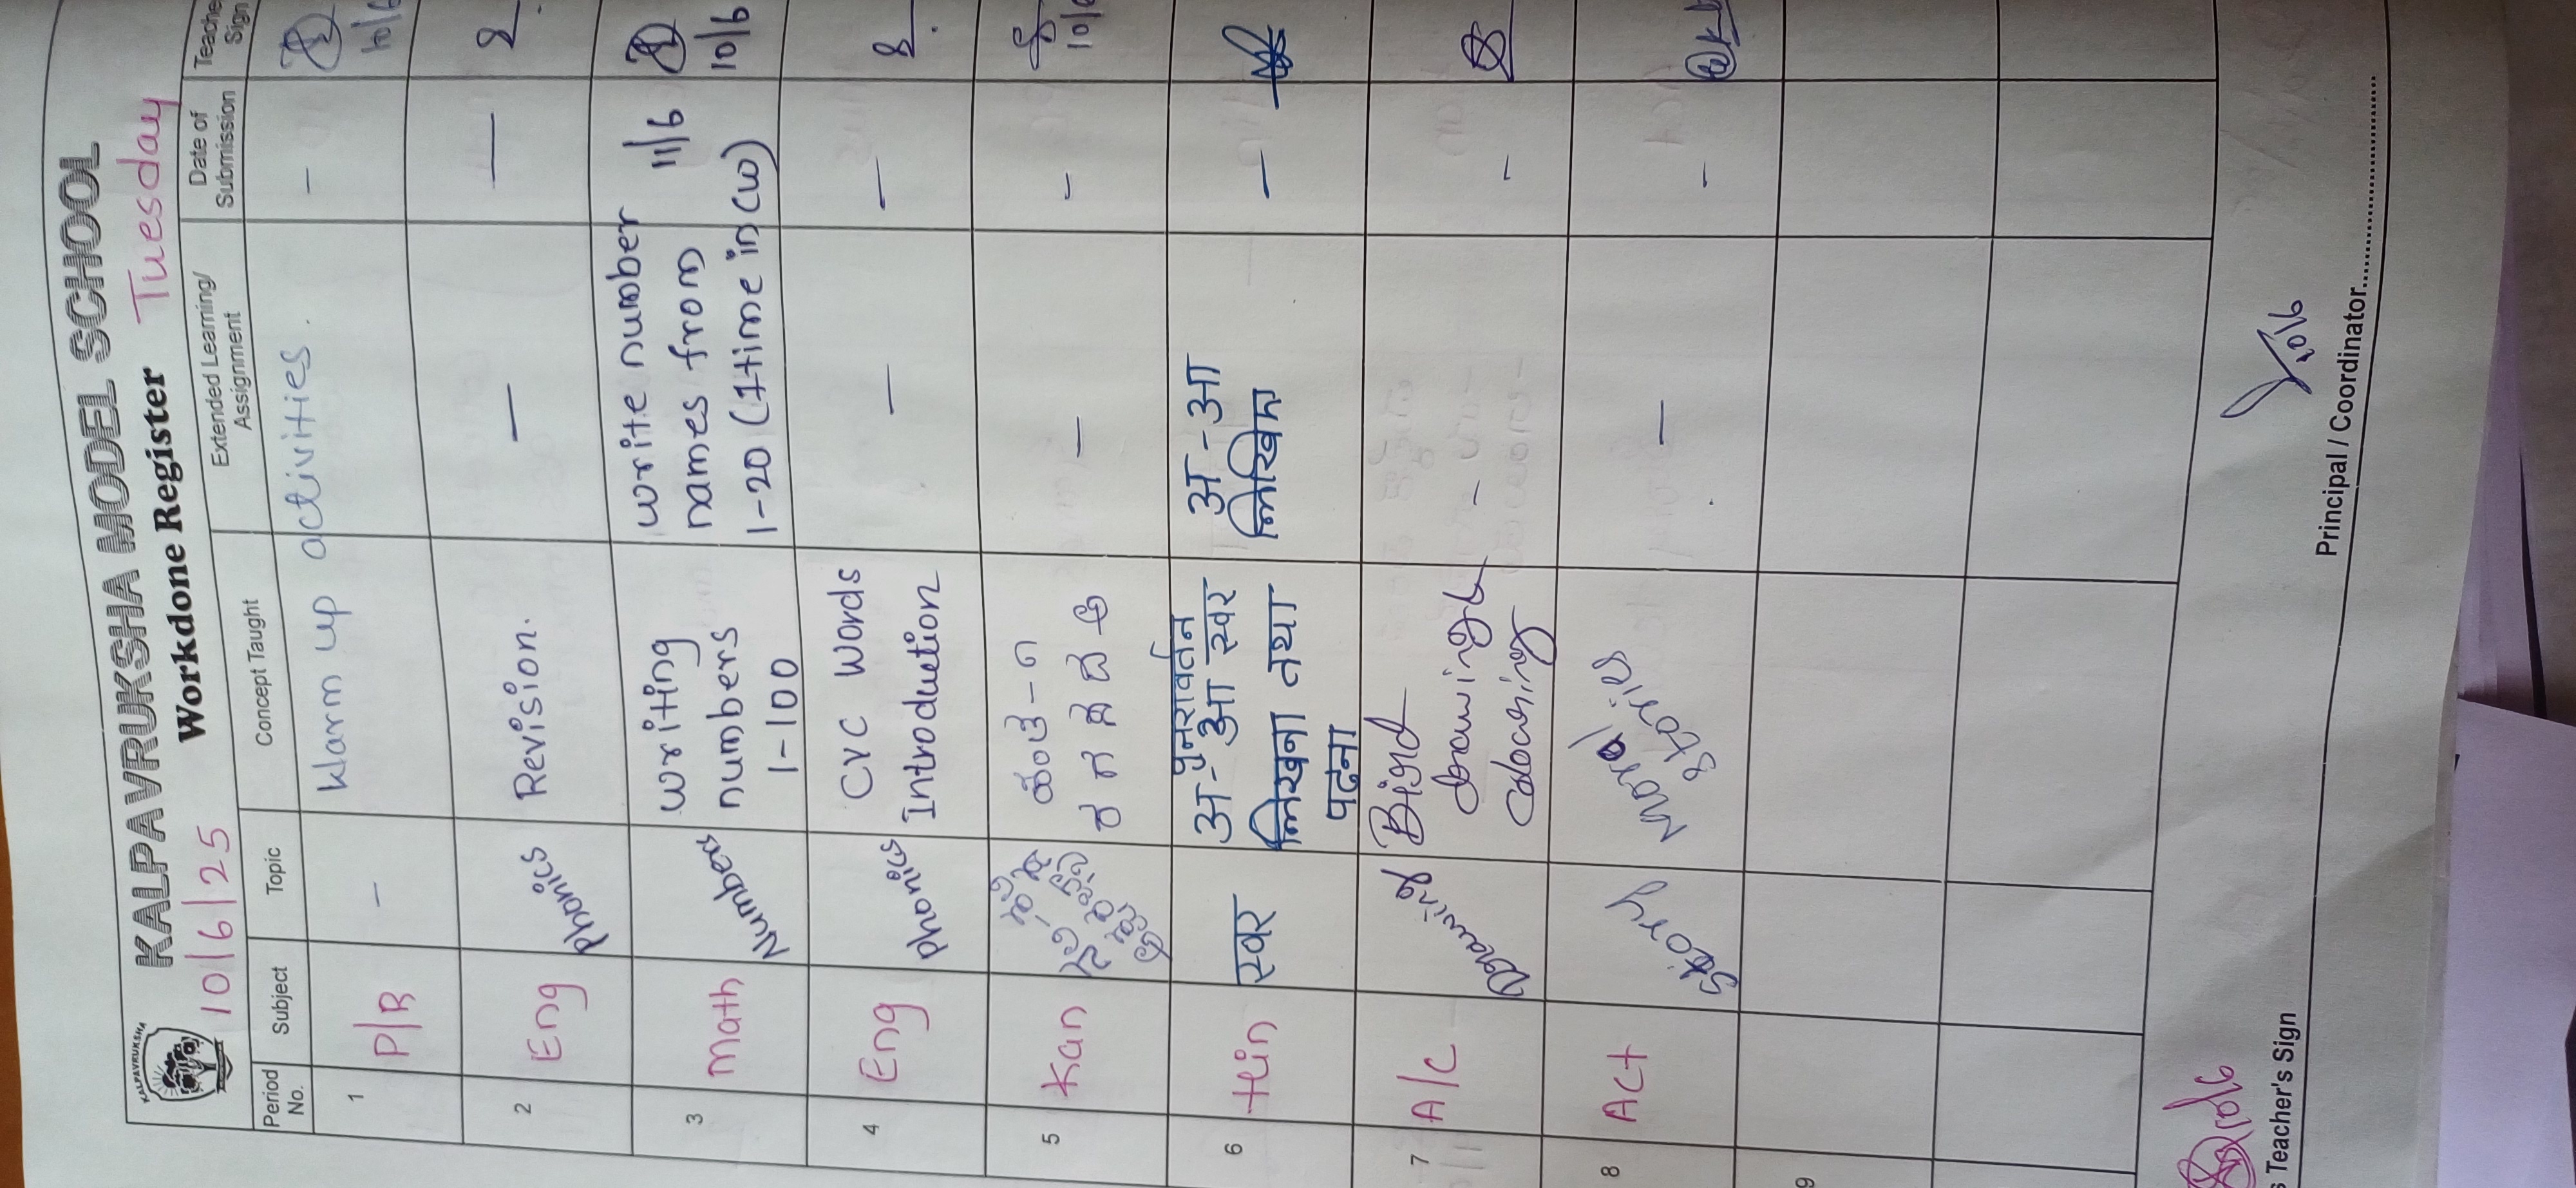 KALPAVRUKSHA
KALPAVRUKSHA MODEL SCHOOL
10/6/25 Workdone Register Tuesday
Period No. Subject Topic Concept Taught Extended Learning/ Assignment Date of Submission Teache Sign
1 P/R - Warm up activities. - 10/6
2 Eng Phonics Revision. — —
3 Math Numbers writing numbers 1-100 write number names from 1-20 (1time in CW) 11/6 10/6
4 Eng phonics CVC Words Introduction — —
5 Kan ಹಂತ - ೧ ರ ಗ ಸ ದ ಅ - - 10/6
6 Hin स्वर पुनरावर्तन अ - आ स्वर लिखना तथा पढना अ - आ लिखिए —
7 A/C Drawing Bird drawing & colouring - -
8 Act Story Moral stories — -
9
10/6 10/6
Teacher's Sign Principal / Coordinator